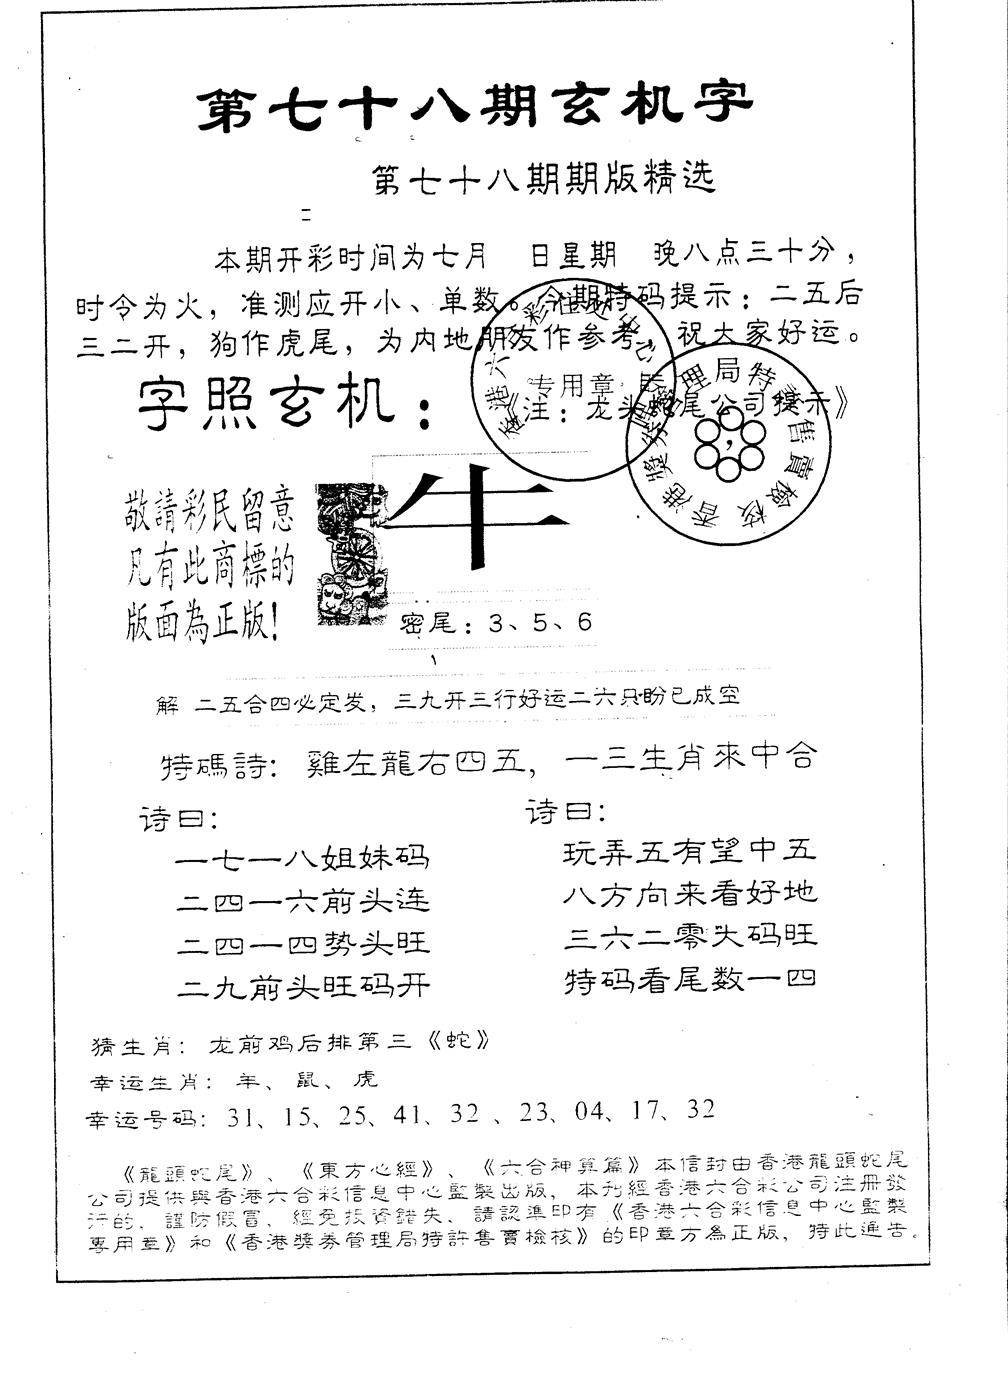 第七十八期玄机字
第七十八期期版精选
二
本期开彩时间为七月 日星期 晚八点三十分，
时令为火，准测应开小、单数。今期特码提示：二五后
三二开，狗作虎尾，为内地朋友作参考 祝大家好运。
字照玄机：
《注：龙头蛇尾公司提示》
专用章
香港獎券管理局特許售賣檢核
敬請彩民留意
凡有此商標的
版面為正版！
密尾：3、5、6
解 二五合四必定发，三九开三行好运二六只盼已成空
特碼詩：雞左龍右四五，一三生肖來中合
诗曰：
一七一八姐妹码
二四一六前头连
二四一四势头旺
二九前头旺码开
诗曰：
玩弄五有望中五
八方向来看好地
三六二零大码旺
特码看尾数一四
猜生肖：龙前鸡后排第三《蛇》
幸运生肖：羊、鼠、虎
幸运号码：31、15、25、41、32 、23、04、17、32
《龍頭蛇尾》、《東方心經》、《六合神算篇》本信封由香港龍頭蛇尾
公司提供與香港六合彩信息中心監製出版，本刊經香港六合彩公司注冊發
行的，謹防假冒，經免投資錯失，請認準印有《香港六合彩信息中心監製
專用章》和《香港獎券管理局特許售賣檢核》的印章方為正版，特此通告。